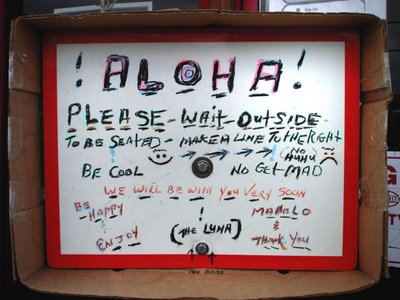 ! ALOHA !
PLEASE - WAIT - OUTSIDE -
TO BE SEATED - MAKE A LINE TO THE RIGHT
(NO HUHU
BE COOL NO GET MAD
WE WILL BE WITH YOU VERY SOON
BE HAPPY ! MAHALO
& ENJOY (THE LUNA) & THANK YOU
THE BOSS